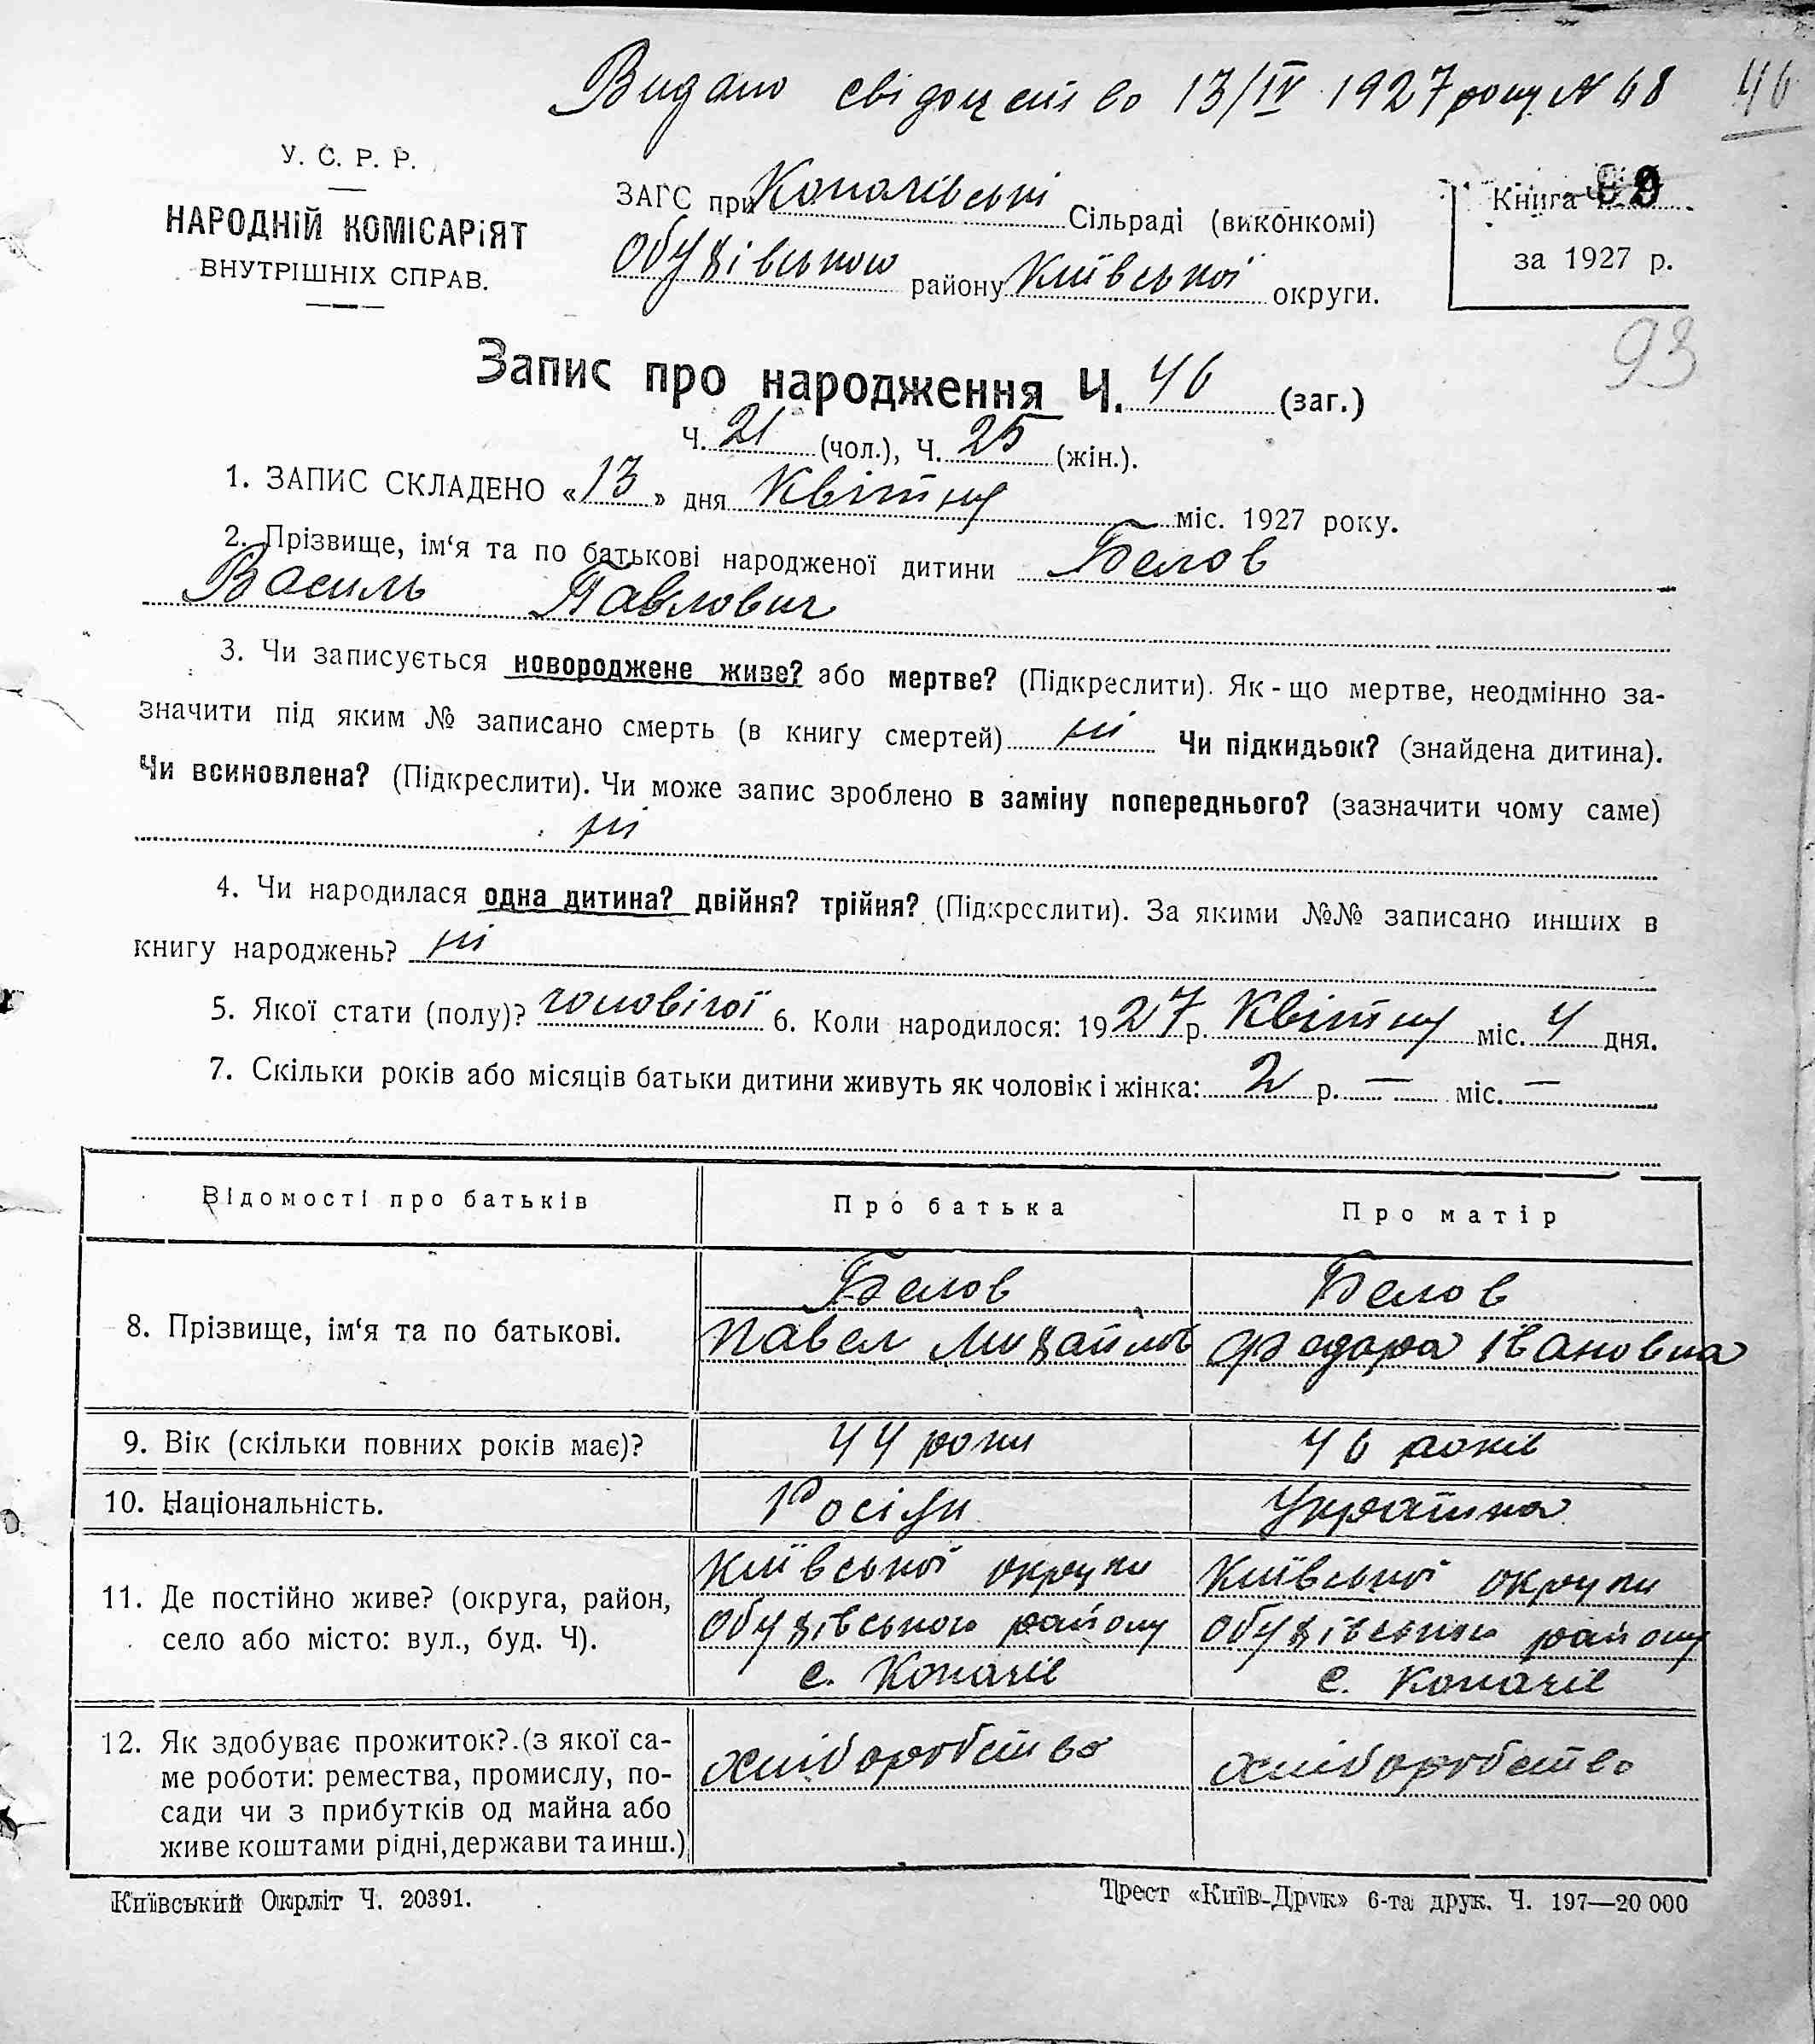 Видано свідоцтво 13/IV 1927 року N 68
46
У. С. Р. Р.
НАРОДНІЙ КОМІСАРІЯТ
ВНУТРІШНІХ СПРАВ.
ЗАГС при Копачівські Сільраді (виконкомі)
Обухівського району Київської округи.
Книга
за 1927 р.
93
Запис про народження Ч. 46 (заг.)
Ч. 21 (чол.), Ч. 25 (жін.).
1. ЗАПИС СКЛАДЕНО «13» дня Квітну міс. 1927 року.
2. Прізвище, ім‘я та по батькові народженої дитини Белов
Василь Павлович
3. Чи записується новороджене живе? або мертве? (Підкреслити). Як-що мертве, неодмінно за-
значити під яким № записано смерть (в книгу смертей) ні Чи підкидьок? (знайдена дитина).
Чи всиновлена? (Підкреслити). Чи може запис зроблено в заміну попереднього? (зазначити чому саме)
ні
4. Чи народилася одна дитина? двійня? трійня? (Підкреслити). За якими №№ записано инших в
книгу народжень? ні
5. Якої стати (полу)? чоловічої 6. Коли народилося: 1927 р. Квітну міс. 4 дня.
7. Скільки років або місяців батьки дитини живуть як чоловік і жінка: 2 р. — міс. —
Відомості про батьків Про батька Про матір
8. Прізвище, ім‘я та по батькові.
Белов
Павел Михайлов
Белов
Федора Івановна
9. Вік (скільки повних років має)? 44 роки 46 років
10. Національність. Росіян Українка
11. Де постійно живе? (округа, район,
село або місто: вул., буд. Ч).
Київської округи
Обухівського району
с. Копачів
Київської округи
Обухівського району
с. Копачів
12. Як здобуває прожиток? (з якої са-
ме роботи: ремества, промислу, по-
сади чи з прибутків од майна або
живе коштами рідні, держави та инш.)
хліборобство
хліборобство
Київський Окрліт Ч. 20391.
Трест «Київ-Друк» 6-та друк. Ч. 197—20 000